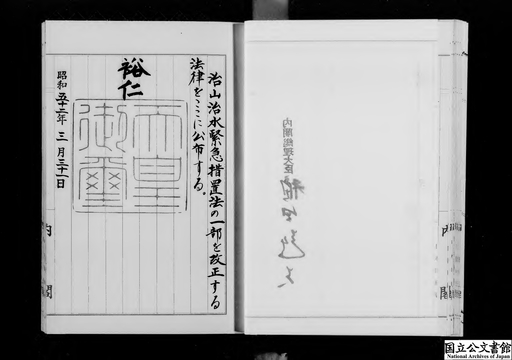 治山治水緊急措置法の一部を改正する
法律をここに公布する。
裕仁
天皇
御璽
昭和五十二年三月三十一日
内閣
内閣総理大臣
内閣
国立公文書館
National Archives of Japan